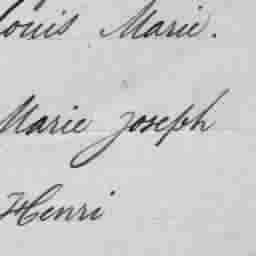 Louis Marie.
Marie Joseph
Henri